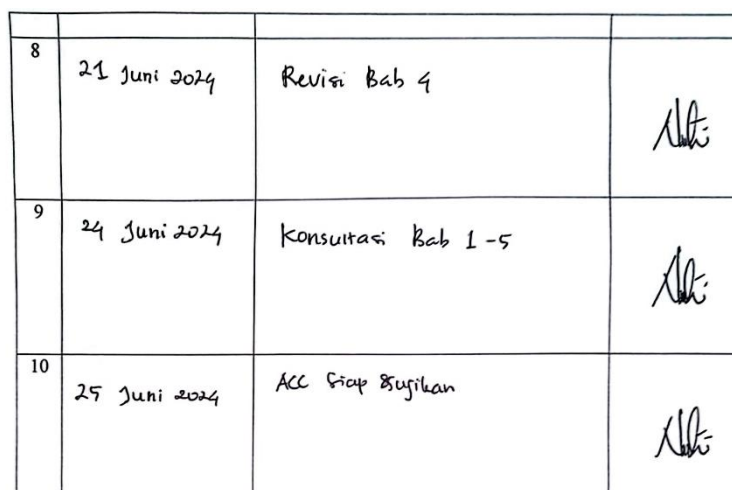 8
21 Juni 2024
Revisi Bab 4
9
24 Juni 2024
Konsultasi Bab 1-5
10
25 Juni 2024
ACC Siap diujikan